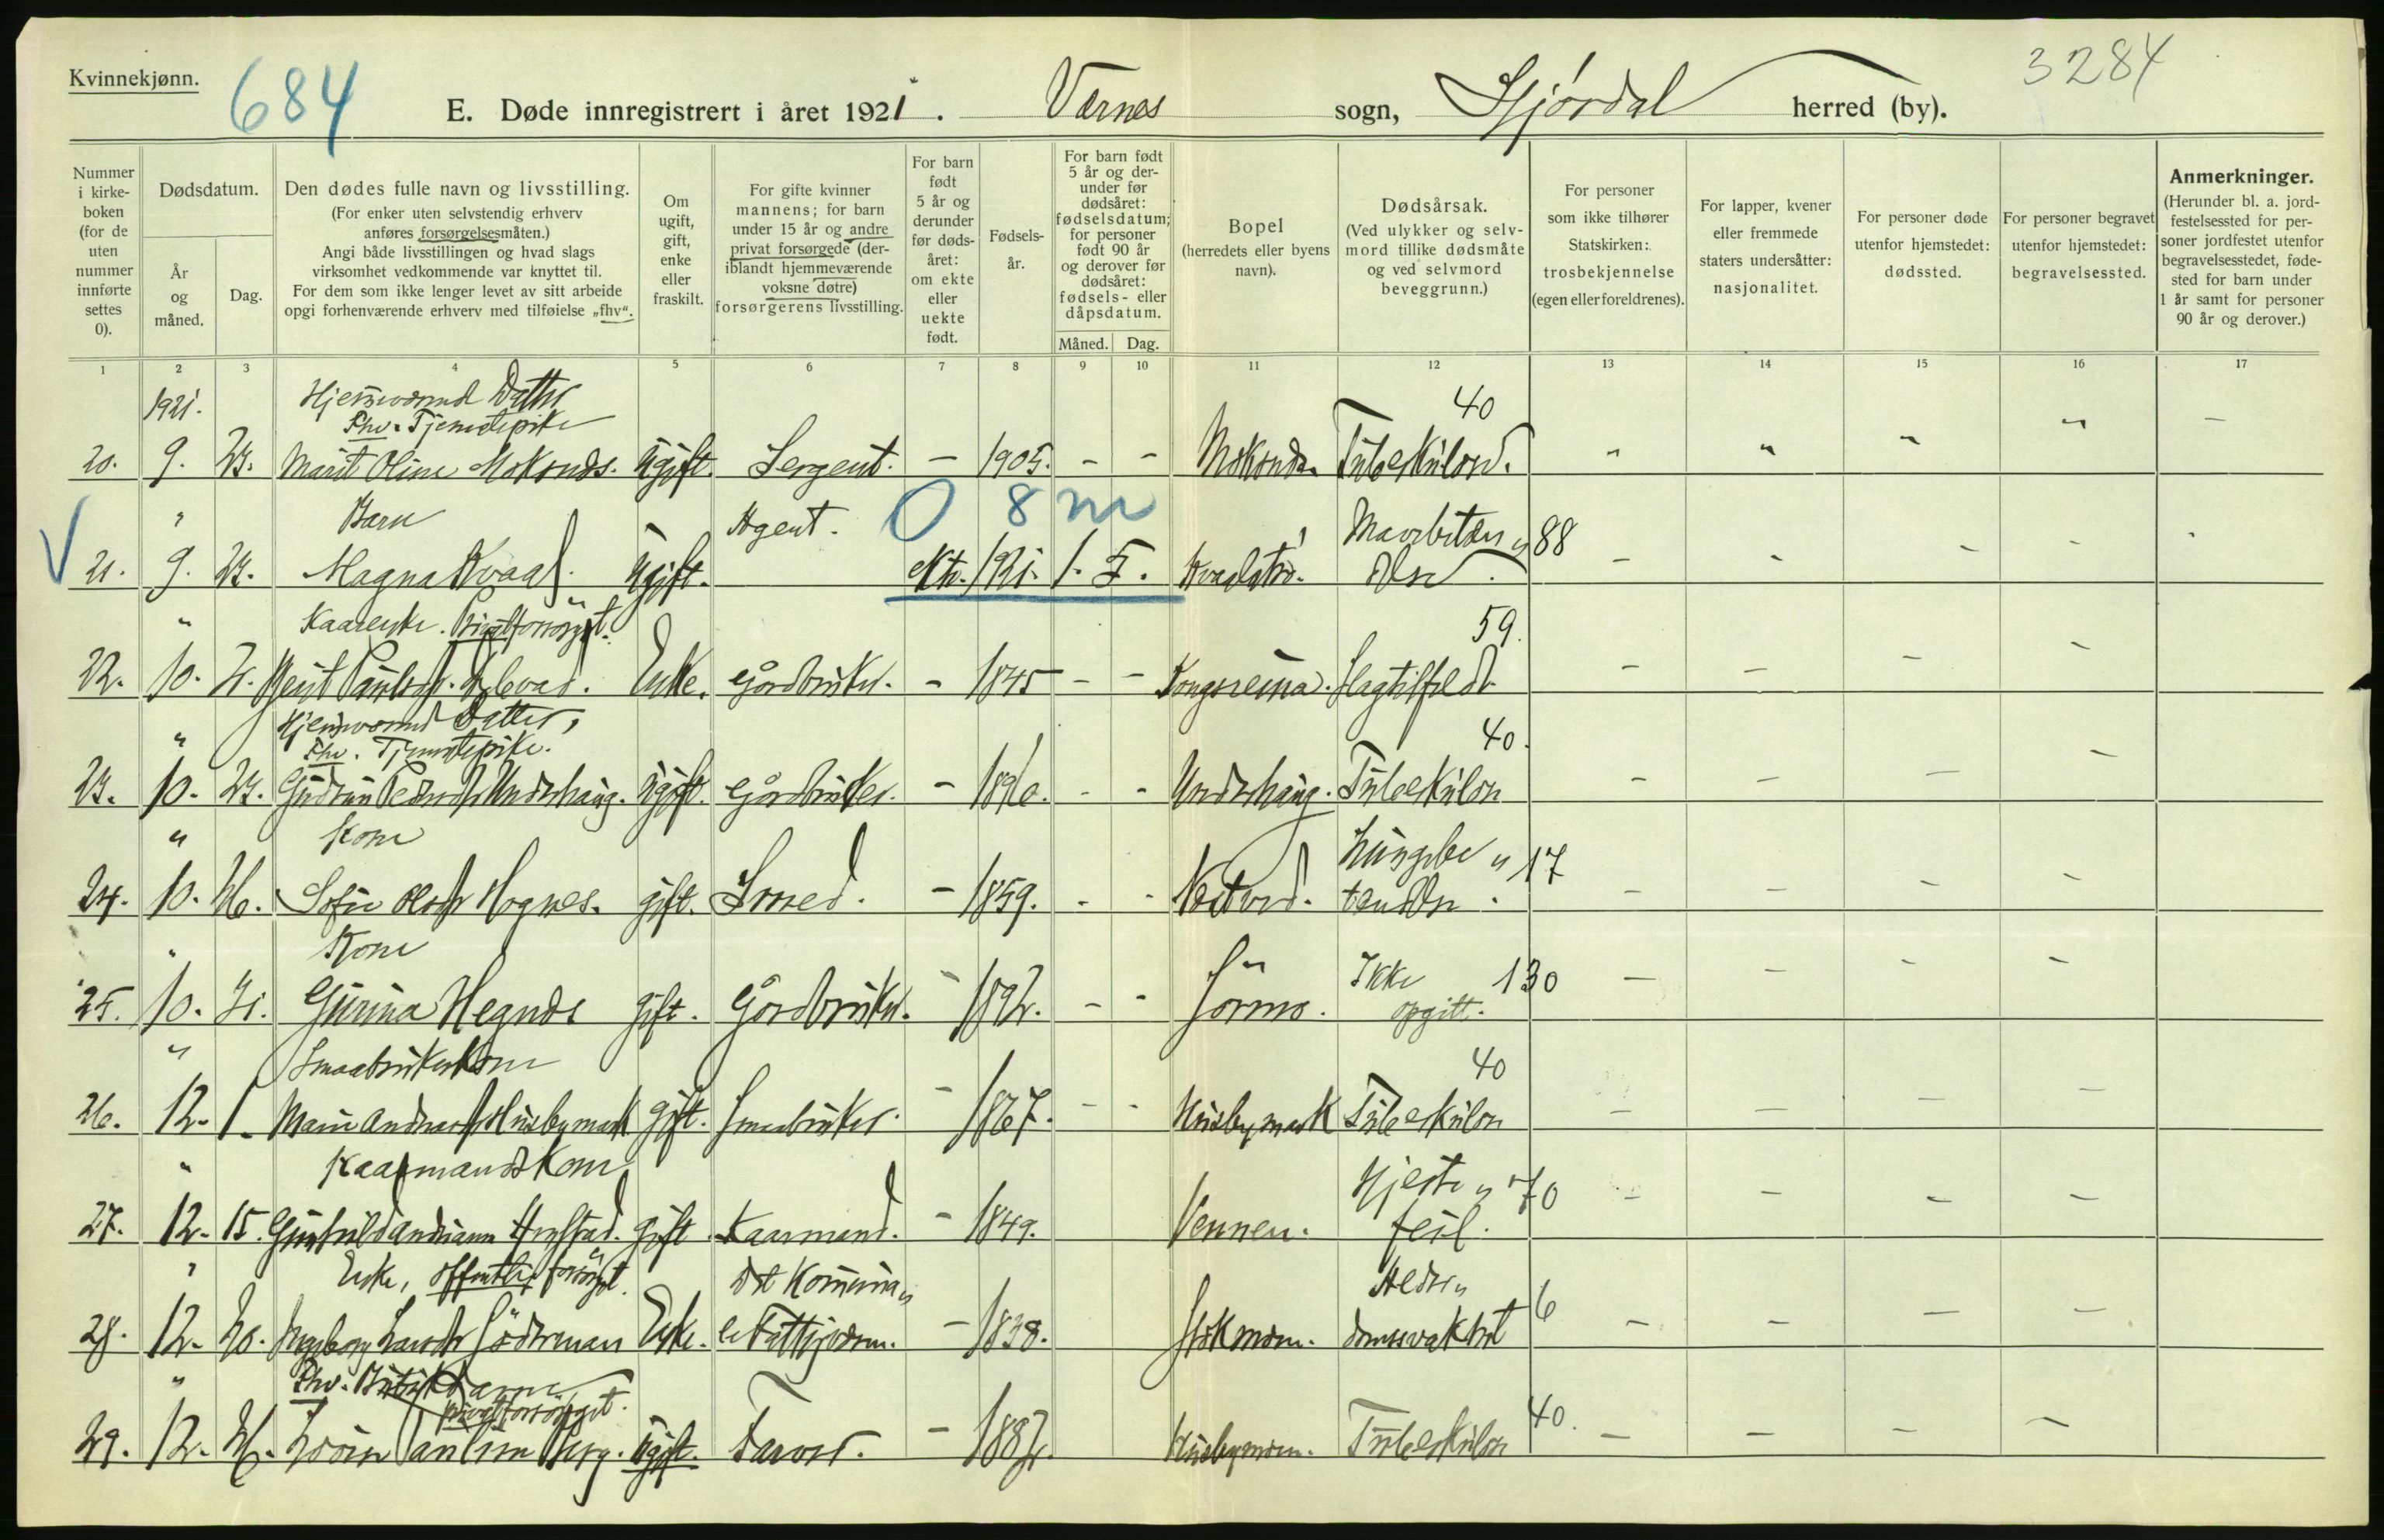 Kvinnekjønn.
684
3284
E. Døde innregistrert i året 1921. Værnes sogn, Stjørdal herred (by).
Nummer i kirke-boken (for de uten nummer innførte settes 0).
Dødsdatum.
År og måned.
Dag.
Den dødes fulle navn og livsstilling.
(For enker uten selvstendig erhverv anføres forsørgelsesmåten.)
Angi både livsstillingen og hvad slags virksomhet vedkommende var knyttet til.
For dem som ikke lenger levet av sitt arbeide opgi forhenværende erhverv med tilføielse „fhv“.
Om ugift, gift, enke eller fraskilt.
For gifte kvinner mannens; for barn under 15 år og andre privat forsørgede (deriblandt hjemmeværende voksne døtre) forsørgerens livsstilling.
For barn født 5 år og derunder før dødsåret: om ekte eller uekte født.
Fødselsår.
For barn født 5 år og derunder før dødsåret: fødselsdatum; for personer født 90 år og derover før dødsåret: fødsels- eller dåpsdatum.
Måned. Dag.
Bopel
(herredets eller byens navn).
Dødsårsak.
(Ved ulykker og selvmord tillike dødsmåte og ved selvmord beveggrunn.)
For personer som ikke tilhører Statskirken: trosbekjennelse (egen eller foreldrenes).
For lapper, kvener eller fremmede staters undersåtter: nasjonalitet.
For personer døde utenfor hjemstedet: dødssted.
For personer begravet utenfor hjemstedet: begravelsessted.
Anmerkninger.
(Herunder bl. a. jordfestelsessted for personer jordfestet utenfor begravelsesstedet, fødested for barn under 1 år samt for personer 90 år og derover.)
1 2 3 4 5 6 7 8 9 10 11 12 13 14 15 16 17
1921. Hjemværend Datter 40
Fhv. Tjenestepike
20. 9. 23. Marit Oline Ugift. Sergent. – 1905. – – Tuberkulose.
" Barn Agent. 0 8 m 88
21. 9. 23. Magna Kvaal. Ugift. ekte. 1921. 1. 5.
" Kaarenke. Privat forsørget. 59.
22. 10. Enke. Gårdbruker. – 1845 – – Kongsreina. Slagtilfeldt
" Hjemværend Datter, 40.
Fhv. Tjenestepike.
23. 10. 23. Gudrun Pedersdtr Undershaug. Ugift. Gårdbruker. – – – Undershaug. Tuberkulose
" Kone Lungebe„ 17
24. 10. 26. Sofie Olsdtr Hognes. gift. Smed. – 1859. – – tendelse.
" Kone Ikke 130
25. 10. 31. Gurina gift. Gårdbruker. – 1892. – – opgitt.
" Smaabrukerkone 40
26. 12. 1. Husbymark gift. Smaabruker. – 1867. – – Husbymark Tuberkulose
" Kaarmandskone Hjerte„ 70
27. 12. 15. gift. Kaarmand. – 1849. Vennen. feil.
" Enke, offentlig forsørget. Det Komuna„ Alder„ 6
28. 12. 20. Ingeborg Larsdtr Enke. le Fattigvæsen. – 1838. domssvakhet
" Fhv. Butikkdame
privat forsørget. 40.
29. 12. Berg. ugift. Farver. – Tuberkulose